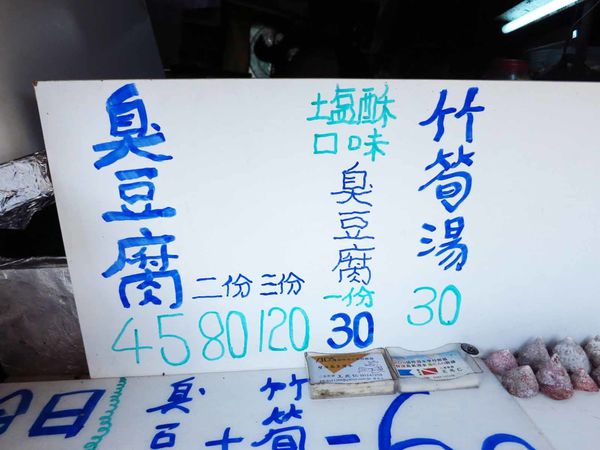 臭豆腐
45
二份
80
三份
120
塩酥
口味
臭豆腐
一份
30
竹筍湯
30
今日
臭豆
+
竹筍